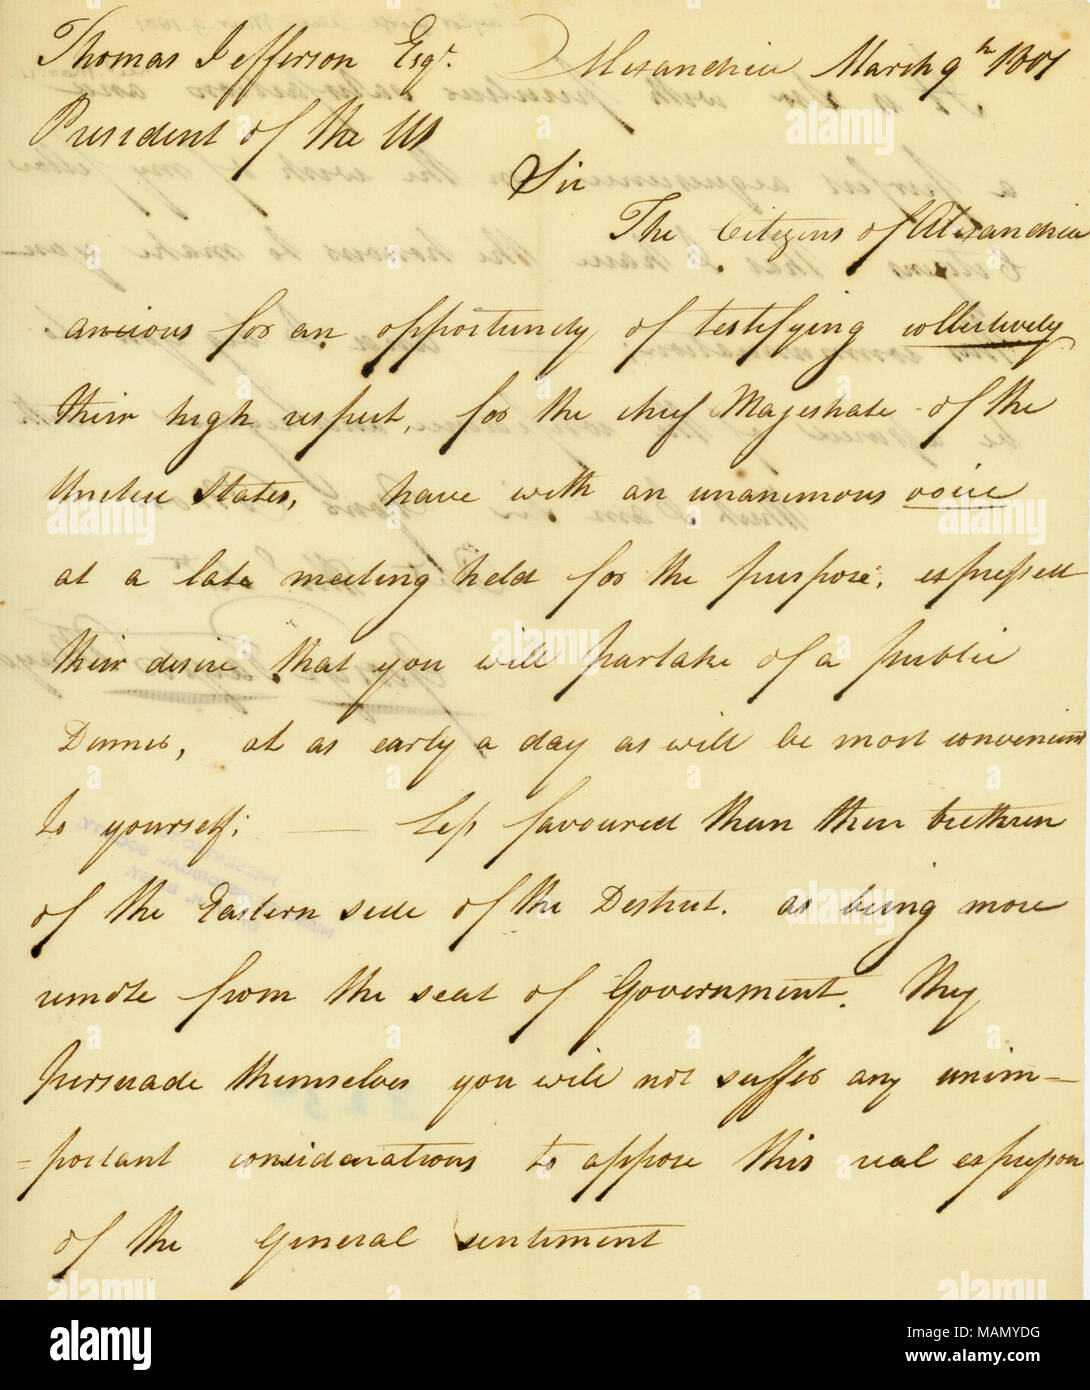 Thomas Jefferson Esqr. Alexandria March 9th 1801
President of the US
Sir
The Citizens of Alexandria
anxious for an opportunity of testifying collectively
their high respect, for the chief Majestrate of the
United States, have with an unanimous voice
at a late meeting held for the purpose, expressed
their desire that you will partake of a public
Dinner, at as early a day as will be most convenient
to yourself; — Less favoured than their brethren
of the Eastern side of the District. as being more
remote from the seat of Government. They
persuade themselves you will not suffer any unim-
-portant considerations to oppose this real expression
of the General sentiment
alamy
Image ID: MAMYDG
www.alamy.com